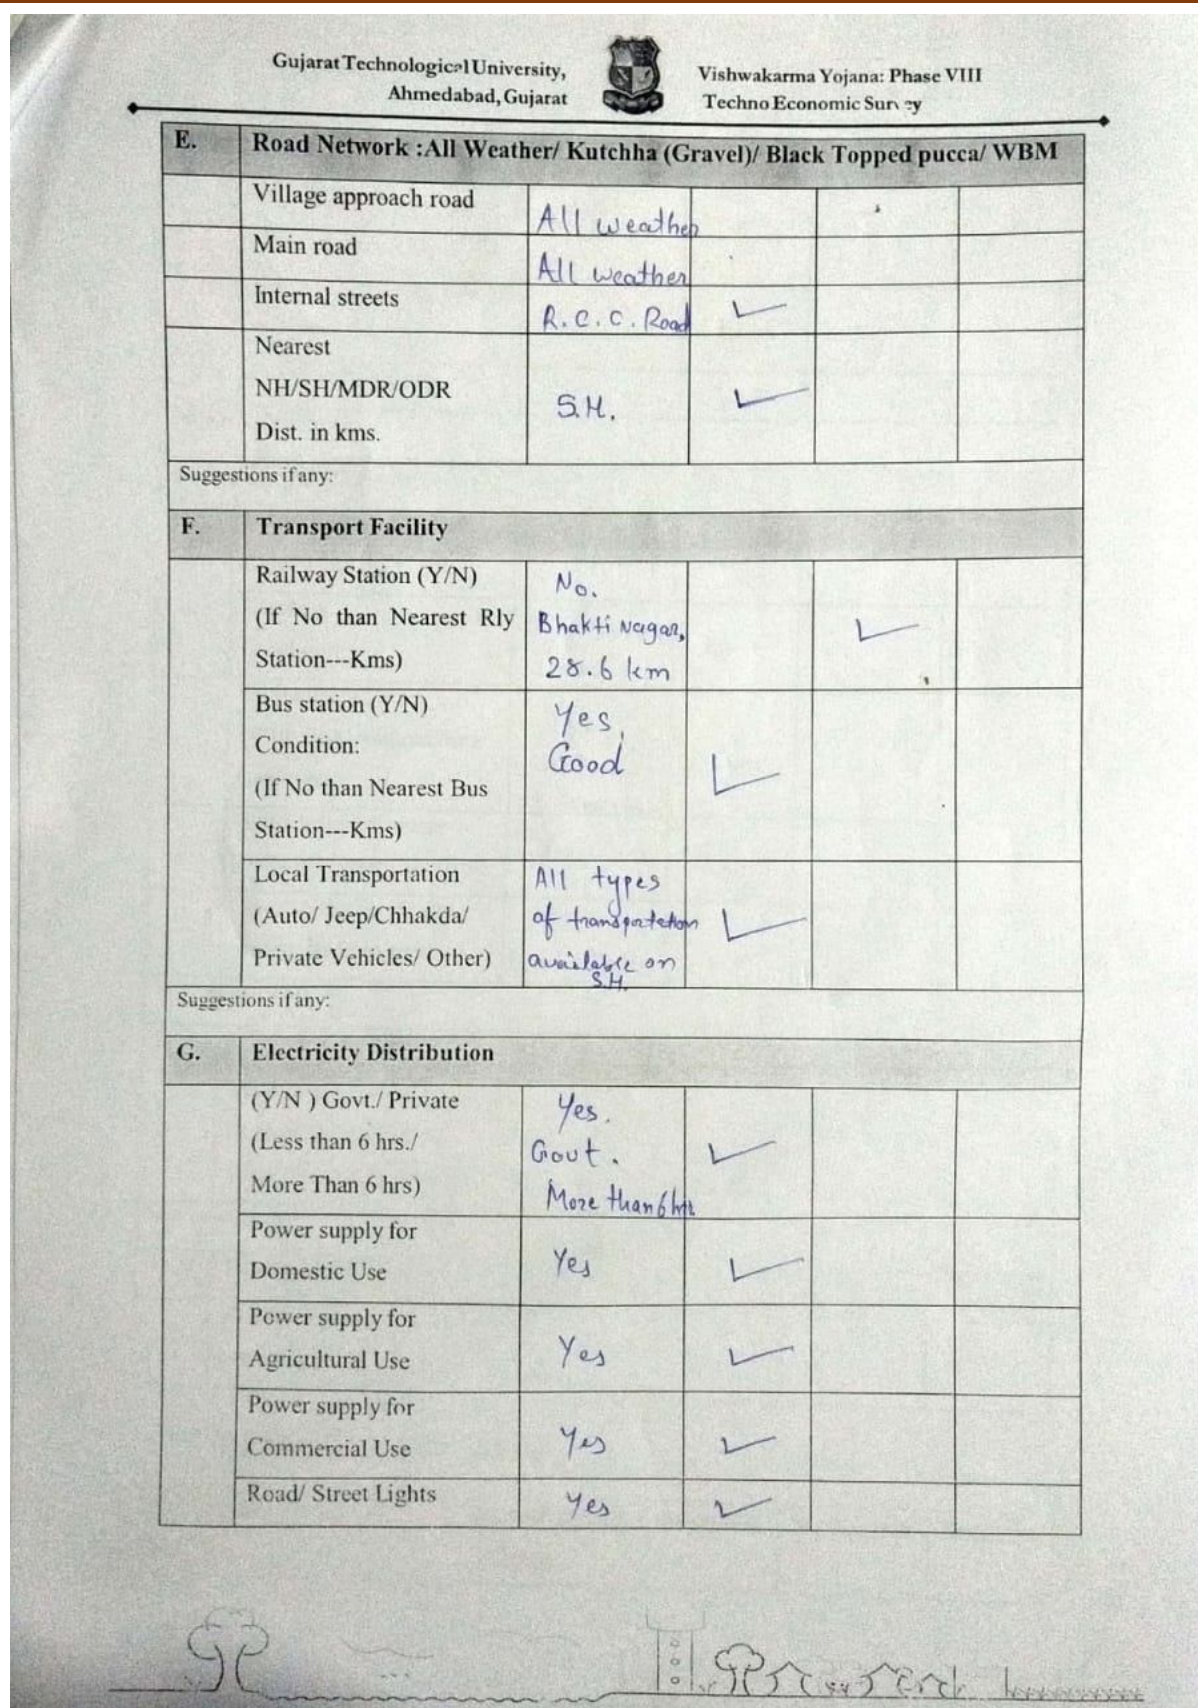 Gujarat Technological University,
Ahmedabad, Gujarat
Vishwakarma Yojana: Phase VIII
Techno Economic Survey
E. Road Network :All Weather/ Kutchha (Gravel)/ Black Topped pucca/ WBM
Village approach road All weather
Main road All weather
Internal streets R.C.C. Road
Nearest
NH/SH/MDR/ODR S.H.
Dist. in kms.
Suggestions if any:
F. Transport Facility
Railway Station (Y/N) No.
(If No than Nearest Rly Bhakti Nagar,
Station---Kms) 28.6 km
Bus station (Y/N) Yes,
Condition: Good
(If No than Nearest Bus
Station---Kms)
Local Transportation All types
(Auto/ Jeep/Chhakda/ of transportation
Private Vehicles/ Other) available on
S.H.
Suggestions if any:
G. Electricity Distribution
(Y/N ) Govt./ Private Yes.
(Less than 6 hrs./ Govt.
More Than 6 hrs) More than 6 hr
Power supply for
Domestic Use Yes
Power supply for
Agricultural Use Yes
Power supply for
Commercial Use Yes
Road/ Street Lights Yes